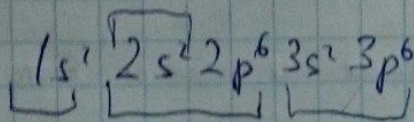 1s¹ 2s² 2p⁶ 3s² 3p⁶